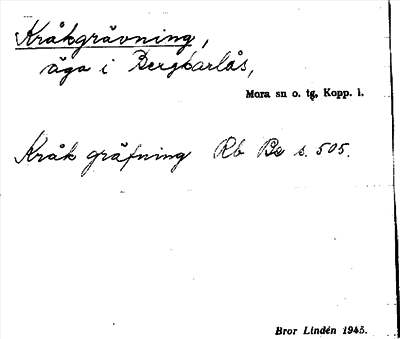 Kråkgrävning,
äga i Bergkarlås,
Mora sn o. tg, Kopp. l.
Kråk gräfning Rb Be s. 505.
Bror Lindén 1945.